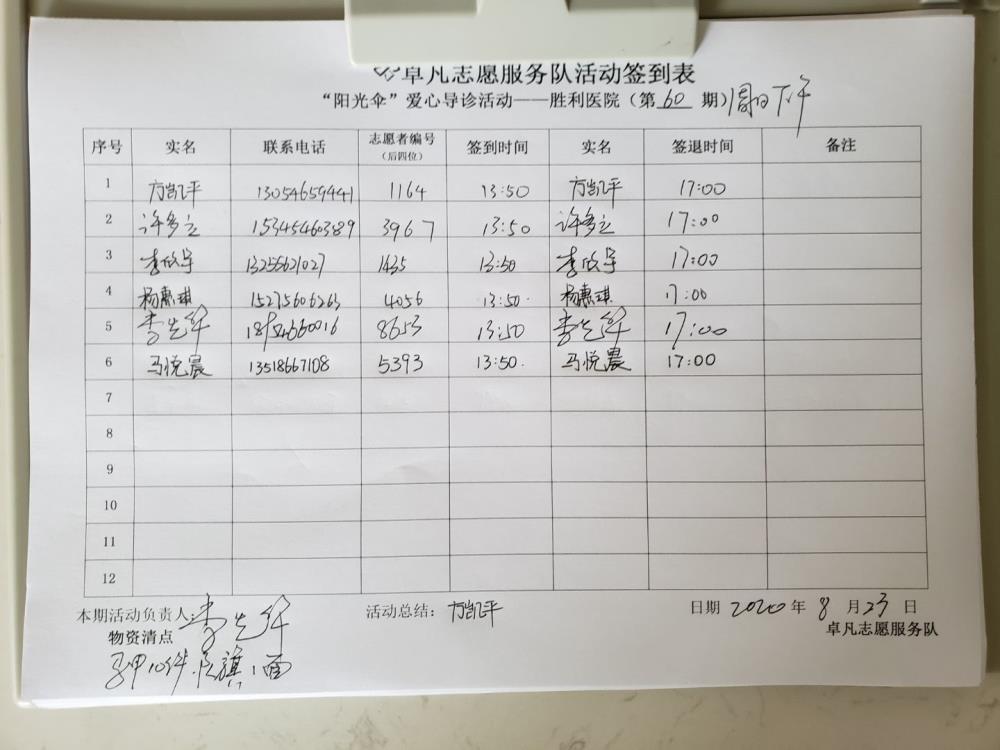 卓凡志愿服务队活动签到表
“阳光伞”爱心导诊活动——胜利医院（第 60 期）周日下午
序号 实名 联系电话 志愿者编号（后四位） 签到时间 实名 签退时间 备注
1 方凯平 13054659441 1164 13:50 方凯平 17:00
2 许多立 15345460389 3967 13:50 许多立 17:00
3 李欣宇 13256621027 1435 13:50 李欣宇 17:00
4 杨惠琪 15275606263 4056 13:50 杨惠琪 17:00
5 李先华 8653 13:50 李先华 17:00
6 马悦晨 13518667108 5393 13:50 马悦晨 17:00
7
8
9
10
11
12
本期活动负责人：李先华 活动总结：方凯平 日期 2020 年 8 月 23 日
物资清点 卓凡志愿服务队
马甲10件 队旗1面